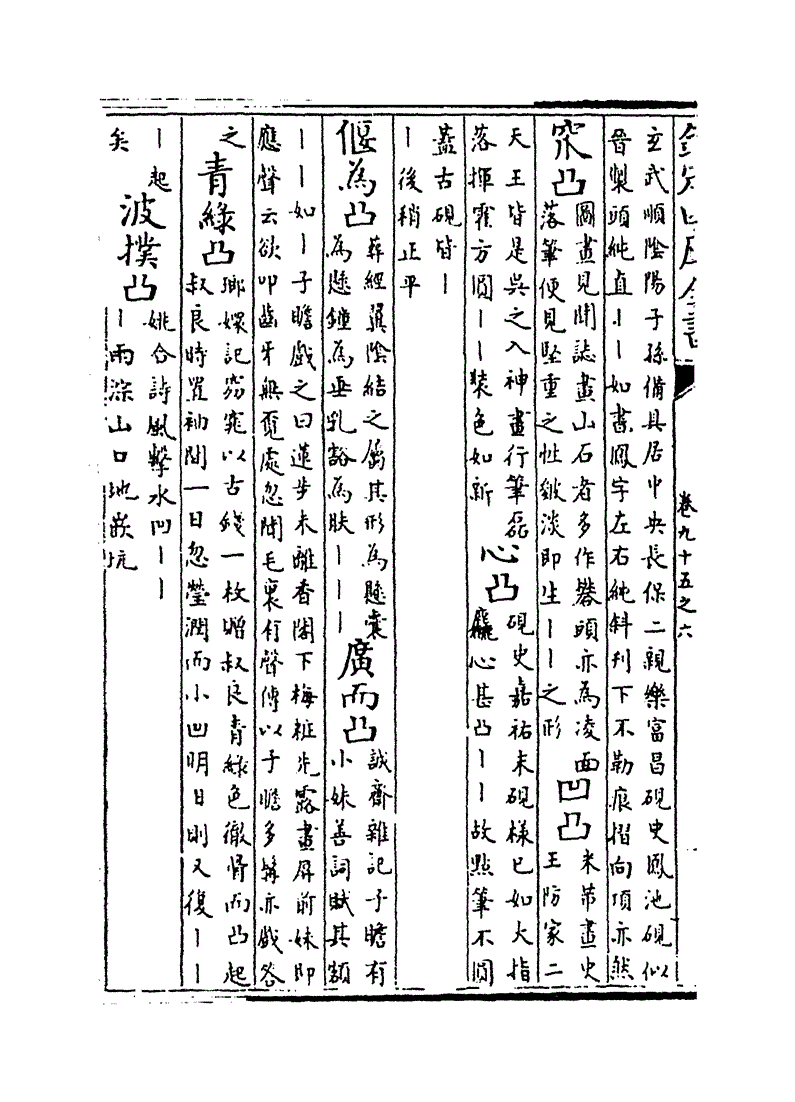 欽定四庫全書
卷九十五之六
玄武順陰陽子孫備具居中央長保二親樂富昌硯史鳳池硯似以
晉製頭純直||如書鳳字左右純斜刋下不勒痕摺向頂亦然
窊凸
圖畫見聞誌畫山石者多作礬頭亦為凌面
落筆便見堅重之性皴淡即生||之形
凹凸
米芾畫史
王防家二
天王皆是吳之入神畫行筆磊
落揮霍方圓||裝色如新
心凸
硯史嘉祐末硯樣已如大指
麤心甚凸||故點筆不圓
蓋古硯皆|
|後稍正平
偃為凸
葬經翼陰結之屬其形為懸囊
為懸鐘為垂乳谿為肤|||
廣而凸
誠齋雜記子瞻有
小妹善詞賦其額
||如|子瞻戲之曰蓮步未離香閣下梅粧先露畫屏前妹即
應聲云欲叩齒牙無覓處忽聞毛裏有聲傳以子瞻多髯亦戲答
之
青綠凸
瑯嬛記窈窕以古錢一枚贈叔良青綠色徹骨而凸起
叔良時置袖間一日忽瑩潤而小凹明日則又復||
|起
矣
波撲凸
姚合詩風擊水凹||
|雨淙山口地嵌坑